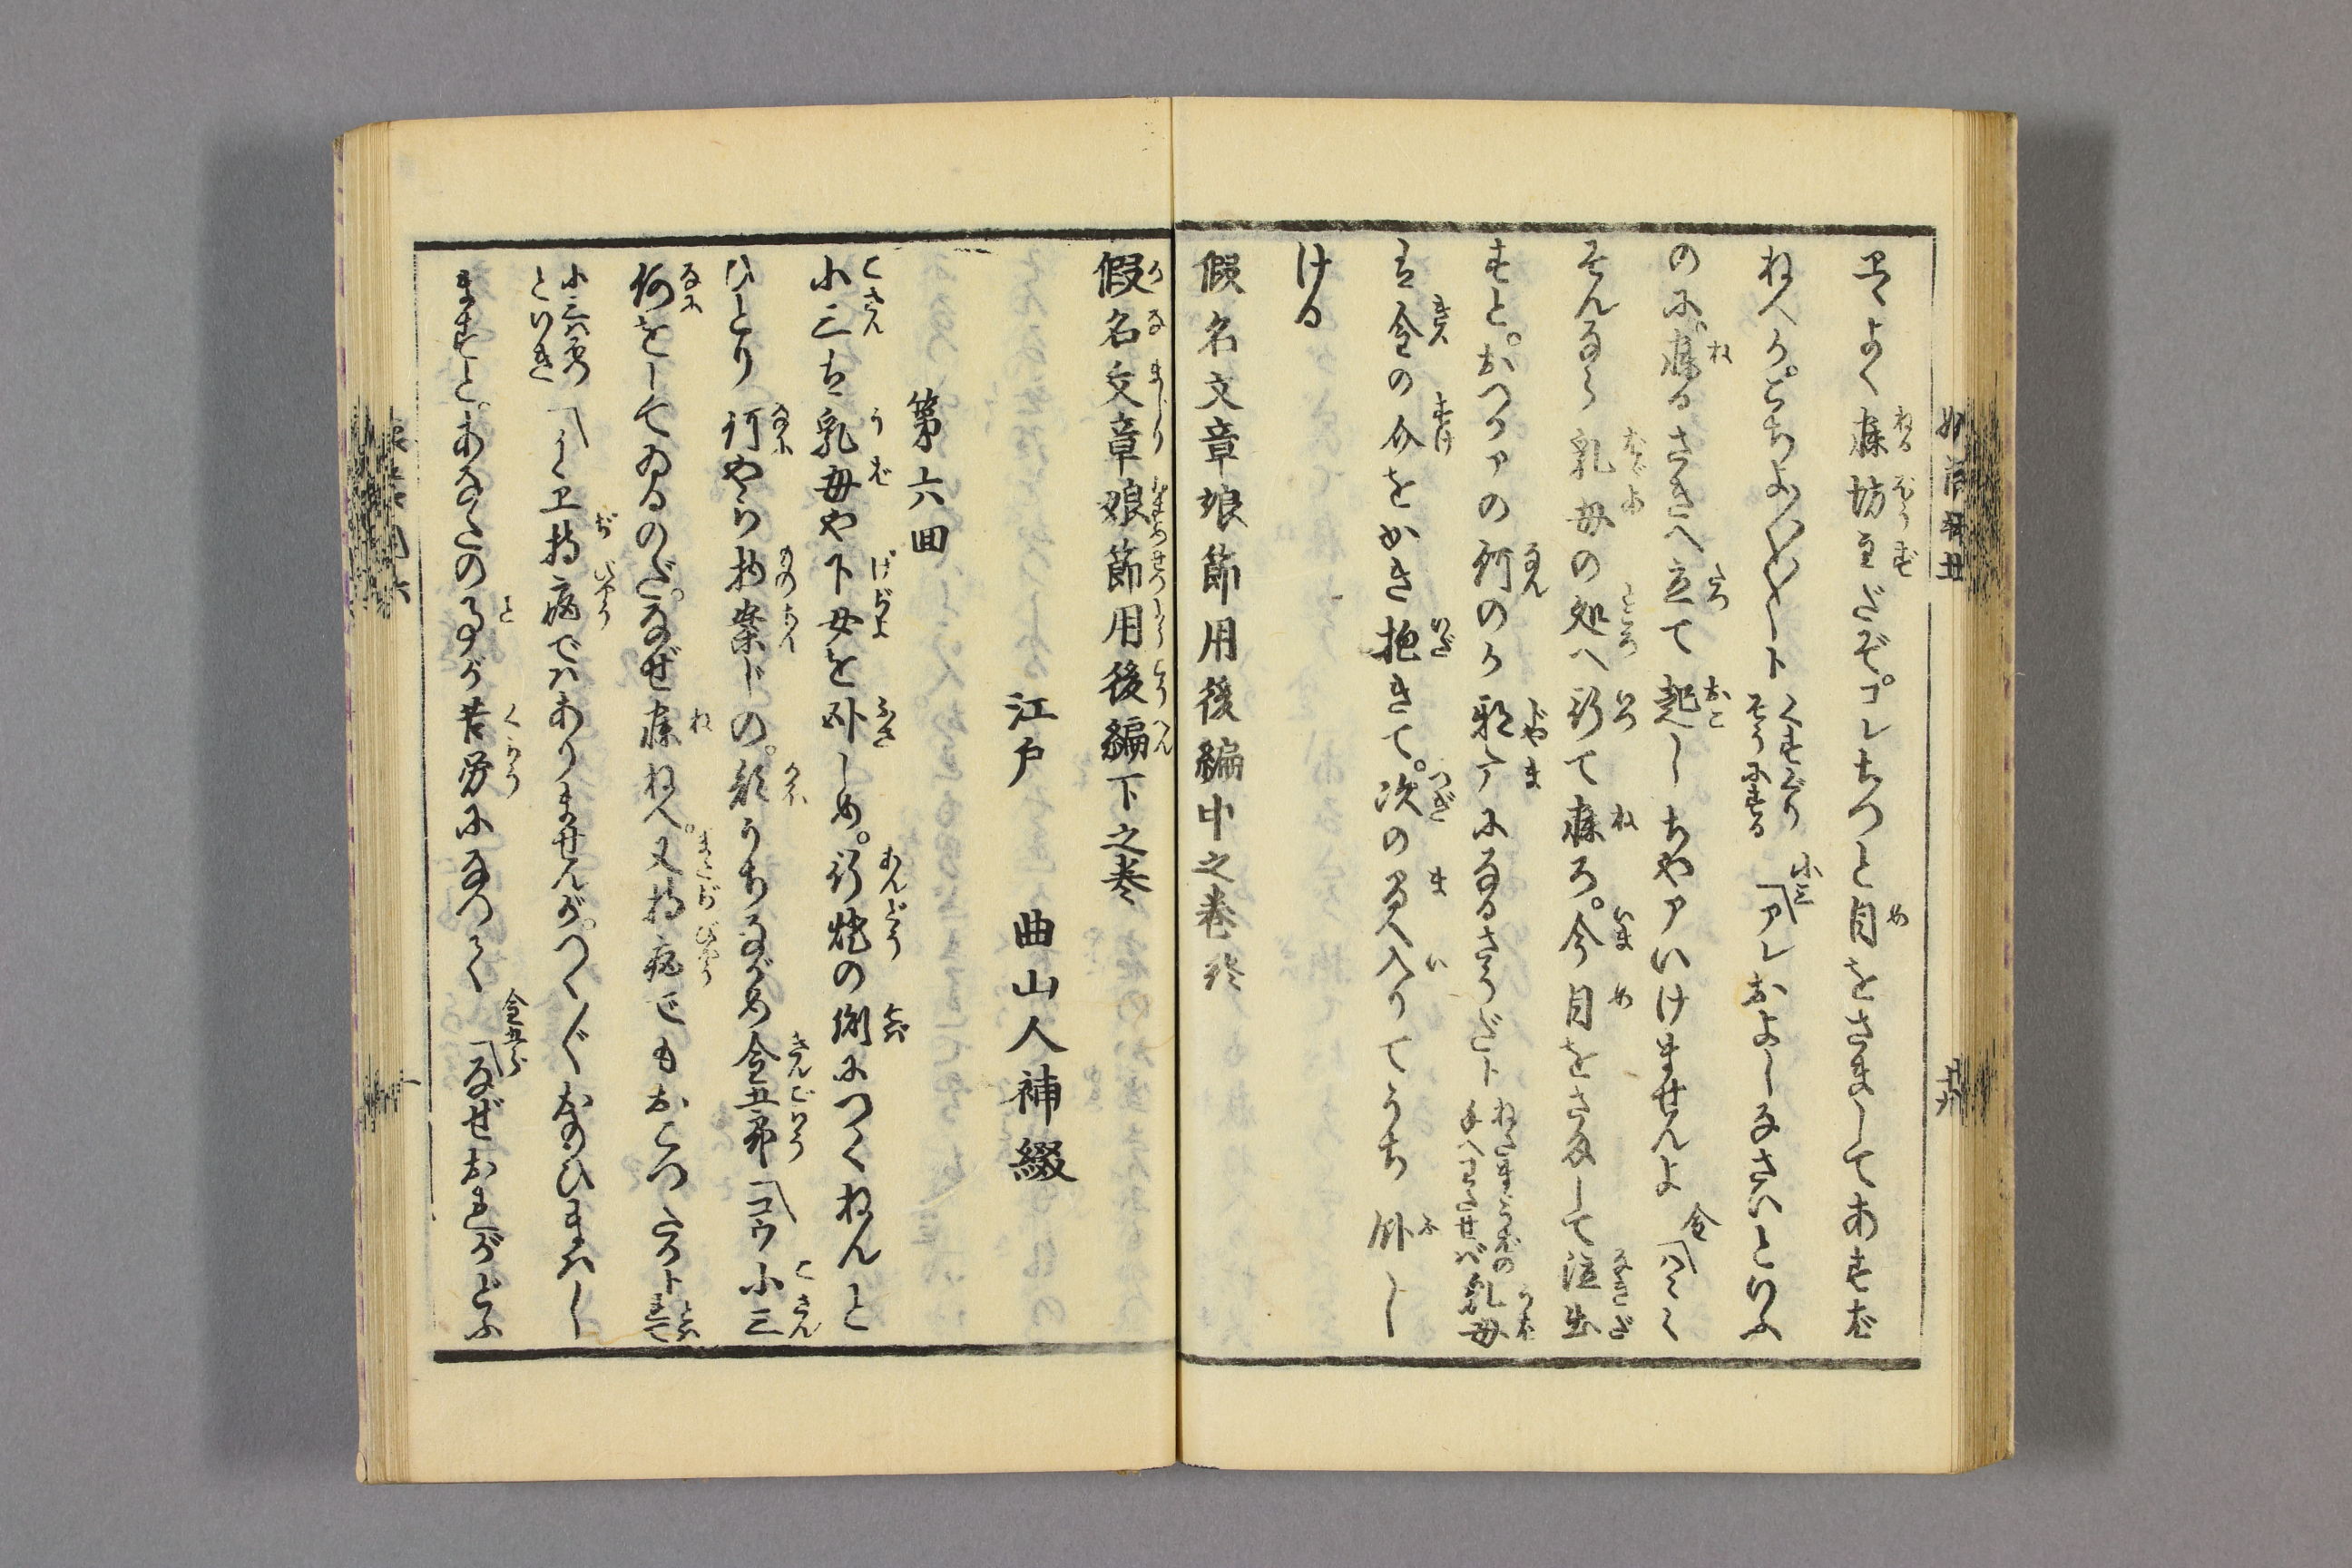 よく寐坊主だぞ。コレちつと目をさましてあすば
ねへか。こちよ〳〵〳〵ト くすぐりそうにする 小三「アレおよしなさいといふ
のに。寐るさきへ立て起しちやアいけませんよ 金「ハヽヽ
そんなら乳母の処へ行て寐ろ。今目をさまして泣出
すと。おつかアの何のか邪广になるさうだト ねかすまゝうばの手へわたせば乳母
は金の介をかき抱きて。次の間へ入りてうち臥し
ける
假名文章娘節用後編中之巻終
假名文章娘節用後編下之巻
江戸 曲山人補綴
第六回
小三は乳母や下女を臥しめ。行燈の側につくねんと
ひとり何やら物案じの。顔うちながめ金五郎「コウ小三
何をしてゐるのだ。なぜ寐ねへ。又持病でもおこつたかト とはれて
小三はほつといき「イヽヱ持病ではありませんが。つく〴〵おもひまはし
ますと。あなたの事が苦労になつて 金五郎「なぜおれがどふ